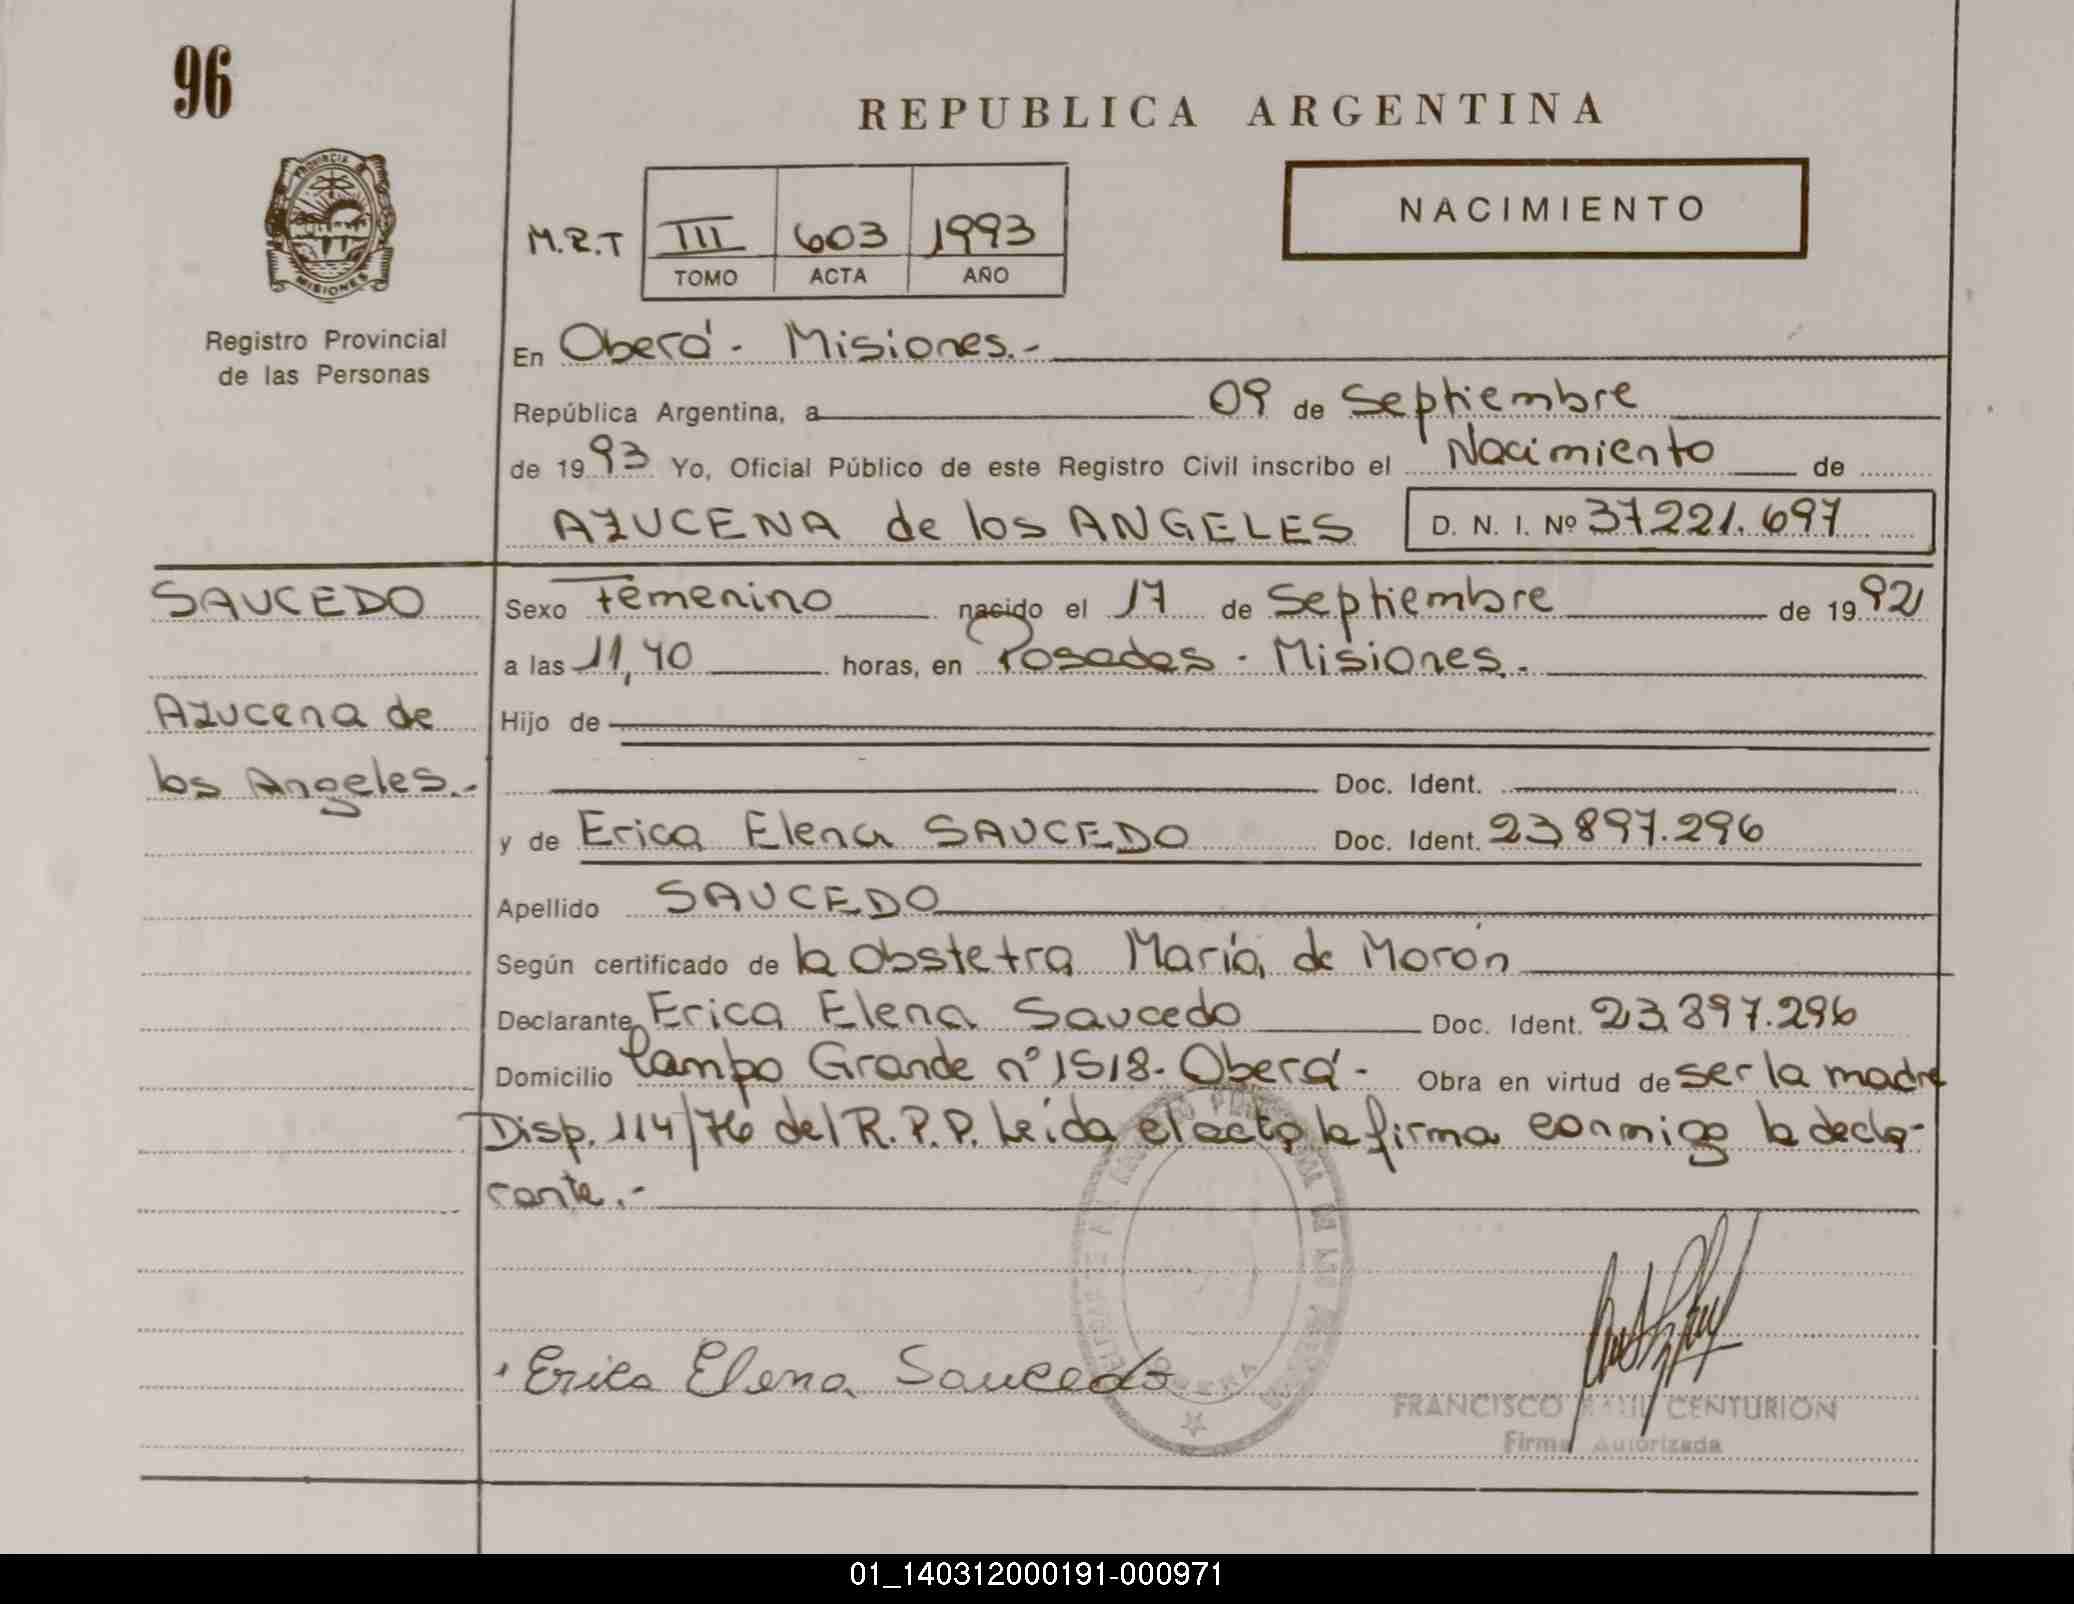 96
REPUBLICA ARGENTINA
NACIMIENTO
PROVINCIA
MISIONES
Registro Provincial
de las Personas
M.R.T III 603 1993
TOMO ACTA AÑO
En Oberá - Misiones.-
República Argentina, a 09 de Septiembre
de 1993 Yo, Oficial Público de este Registro Civil inscribo el Nacimiento de
AZUCENA de los ANGELES D. N. I. Nº 37.221.697
SAUCEDO
Azucena de
los Angeles.-
Sexo Femenino nacido el 17 de Septiembre de 1992
a las 11,40 horas, en Posadas - Misiones.-
Hijo de
Doc. Ident.
y de Erica Elena SAUCEDO Doc. Ident. 23.897.296
Apellido SAUCEDO
Según certificado de la Obstetra María de Morón
Declarante Erica Elena Saucedo Doc. Ident. 23.897.296
Domicilio Campo Grande nº 1518- Oberá - Obra en virtud de ser la madre
Disp. 114/76 del R.P.P. Leída el acta la firma conmigo la decla-
rante.-
Erica Elena Saucedo
FRANCISCO RAUL CENTURION
Firma Autorizada
01_140312000191-000971